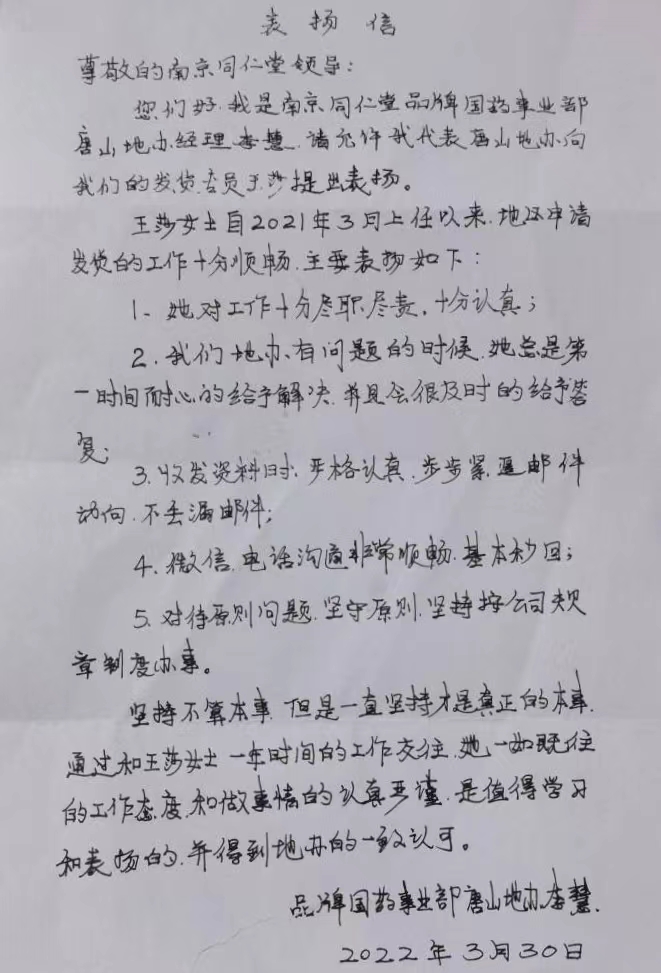 表扬信
尊敬的南京同仁堂领导：
您们好，我是南京同仁堂品牌国药事业部
唐山地办经理李慧，请允许我代表唐山地办向
我们的发货专员王莎提出表扬。
王莎女士自2021年3月上任以来，地区申请
发货的工作十分顺畅，主要表扬如下：
1、她对工作十分尽职尽责，十分认真；
2、我们地办有问题的时候，她总是第
一时间耐心的给予解决，并且会很及时的给予答
复；
3、收发资料时，严格认真，步步紧逼邮件
动向，不丢漏邮件；
4、微信，电话沟通非常顺畅，基本秒回；
5、对待原则问题，坚守原则，坚持按公司规
章制度办事。
坚持不算本事，但是一直坚持才是真正的本事，
通过和王莎女士一年时间的工作交往，她一如既往
的工作态度，和做事情的认真严谨，是值得学习
和表扬的，并得到地办的一致认可。
品牌国药事业部唐山地办李慧.
2022年3月30日